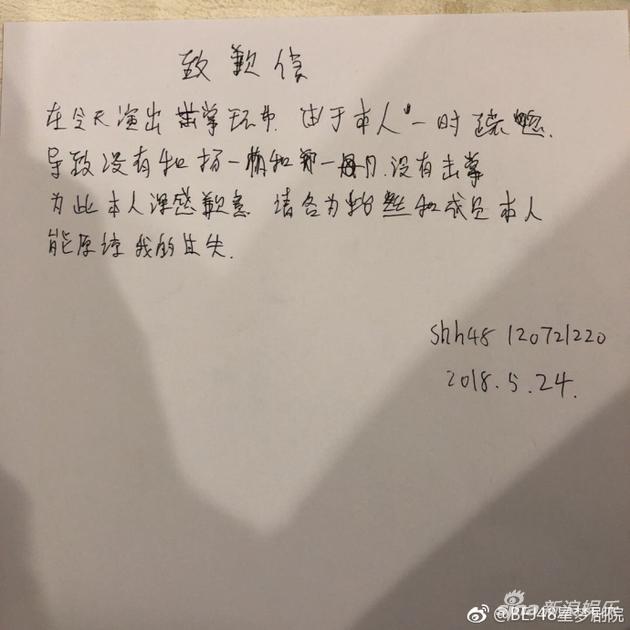 致歉信
在今天演出击掌环节.由于本人一时疏忽.
导致没有和杨一 和郭一 .没有击掌
为此本人深感歉意 请各为粉丝和成员本人
能原谅我的过失.
shh48 120721220
2018.5.24.
sina新浪娱乐
@BEJ48星梦剧院